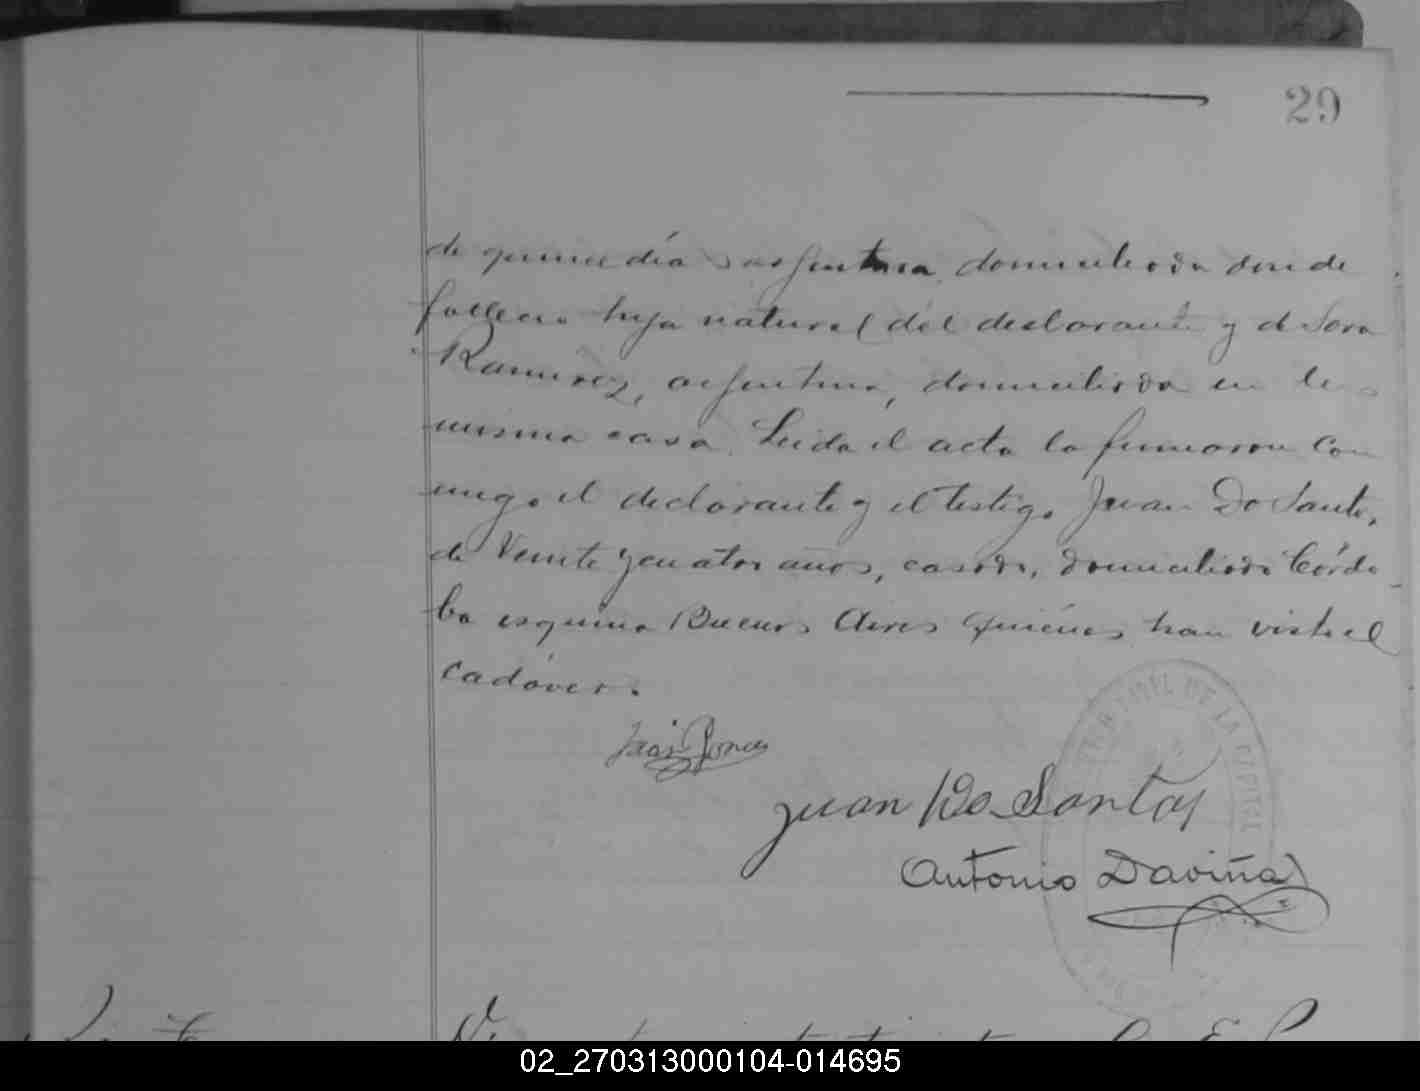 29
de quince días argentina, domiciliada donde
fallecio hija natural del declarante y de Sara
Ramirez, argentina, domiciliada en la
misma casa. Leida el acta la firmaron con
migo el declarante y el testigo Juan Do Santo,
de Veinte y cuatro años, casado, domiciliado Córdo-
ba esquina Buenos Aires quiénes han visto el
cadáver.
Juan Do Santos
Antonio Daviña
CIVIL DE LA CAPITAL
02_270313000104-014695